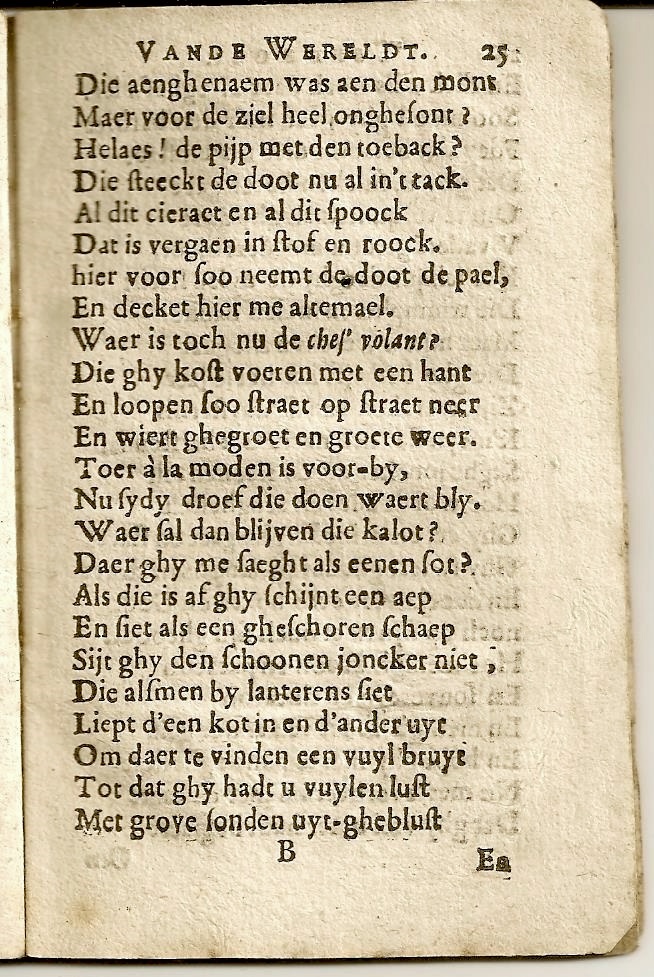 VANDE WERELDT. 25
Die aenghenaem was aen den mont
Maer voor de ziel heel ongheſont ?
Helaes ! de pijp met den toeback ?
Die ſteeckt de doot nu al in't tack.
Al dit cieraet en al dit ſpoock
Dat is vergaen in ſtof en roock.
hier voor ſoo neemt de doot de pael,
En decket hier me altemael.
Waer is toch nu de cheſ' volant ?
Die ghy koſt voeren met een hant
En loopen ſoo ſtraet op ſtraet neer
En wiert ghegroet en groete weer.
Toer à la moden is voor-by,
Nu ſydy droef die doen waert bly.
Waer ſal dan blijven die kalot ?
Daer ghy me ſaeght als eenen ſot ?
Als die is af ghy ſchijnt een aep
En ſiet als een gheſchoren ſchaep
Sijt ghy den ſchoonen joncker niet ,
Die alſmen by lanterens ſiet
Liept d'een kot in en d'ander uyt
Om daer te vinden een vuyl bruyt
Tot dat ghy hadt u vuylen luſt
Met grove ſonden uyt-ghebluſt
B En